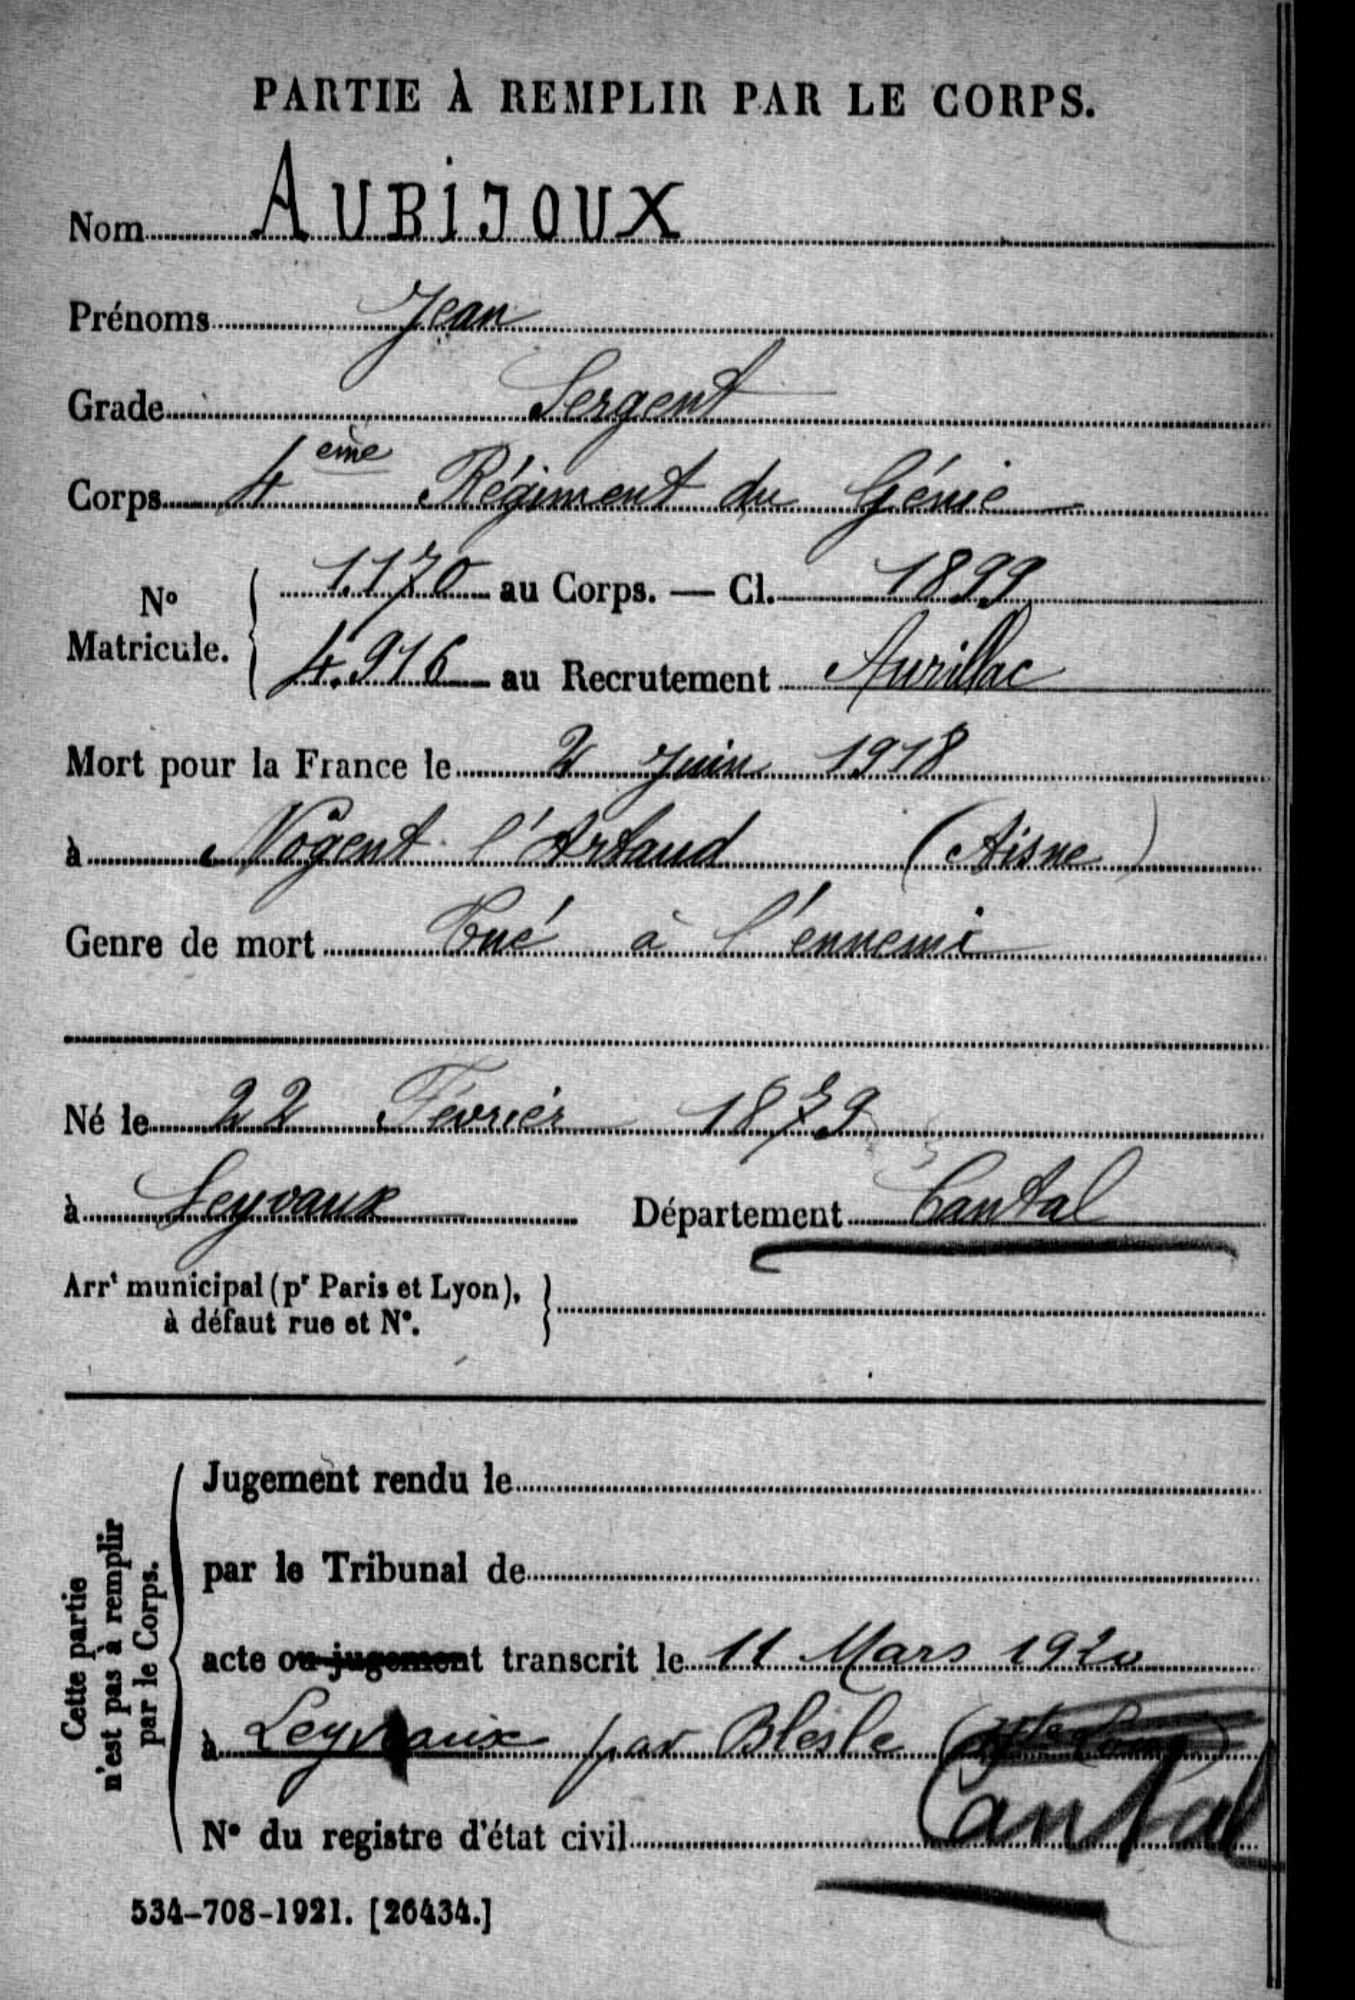 PARTIE À REMPLIR PAR LE CORPS.
Nom AUBIJOUX
Prénoms Jean
Grade Sergent
Corps 4ème Régiment du Génie
N° Matricule. 1170 au Corps. — Cl. 1899
4.916 au Recrutement Aurillac
Mort pour la France le 2 Juin 1918
à Nogent l'Artaud (Aisne)
Genre de mort Tué à l'ennemi
Né le 22 Février 1879
à Leyvaux Département Cantal
Arrt municipal (pr Paris et Lyon),
à défaut rue et N°.
Cette partie
n'est pas à remplir
par le Corps.
Jugement rendu le
par le Tribunal de
acte ou jugement transcrit le 11 Mars 1920
à Leyvaux par Blesle (Hte Loire)
Cantal
N° du registre d'état civil
534-708-1921. [26434.]